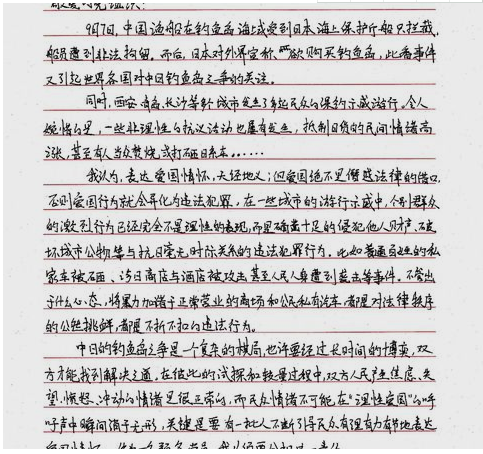 9月7日，中国渔船在钓鱼岛海域受到日本海上保护厅船只拦截，
船员遭到非法拘留。而后，日本对外宣称，欲购买钓鱼岛，此番事件
又引起世界各国对中日钓鱼岛之争的关注。
同时，西安、青岛、长沙等针城市发生了多起民众的保钓示威游行。令人
惋惜的是，一些非理性的抗议活动也屡有发生，抵制日货的民间情绪高
涨，甚至有人当众焚烧或打砸日系车……
我认为，表达爱国情怀，天经地义；但爱国绝不是僭越法律的借口，
否则爱国行为就会异化为违法犯罪。在一些城市的游行示威中，个别群众
的激烈行为已经完全不是理性的表现，而是确凿十足的侵犯他人财产、破
坏城市公物等与抗日毫无对际关系的违法犯罪行为。比如普通百姓的私
家车被砸、涉日商店与酒店被攻击甚至人民人身遭到袭击等事件。不管出
于什么心态，将暴力加诸于正常营业的商场和公民私有汽车，都是对法律秩序
的公然挑衅，都是不折不扣的违法行为。
中日的钓鱼岛之争是一个复杂的棋局，也许要经过长时间的博弈，双
方才能找到解决之道。在彼此的试探和较量过程中，双方人民产生焦虑、失
望、愤怒、冲动的情绪是很正常的，而民众情绪不可能在“理性爱国”的呼
吁声中瞬间消于无形，关键是要有一批人不断引导民众有理有力有节地表达